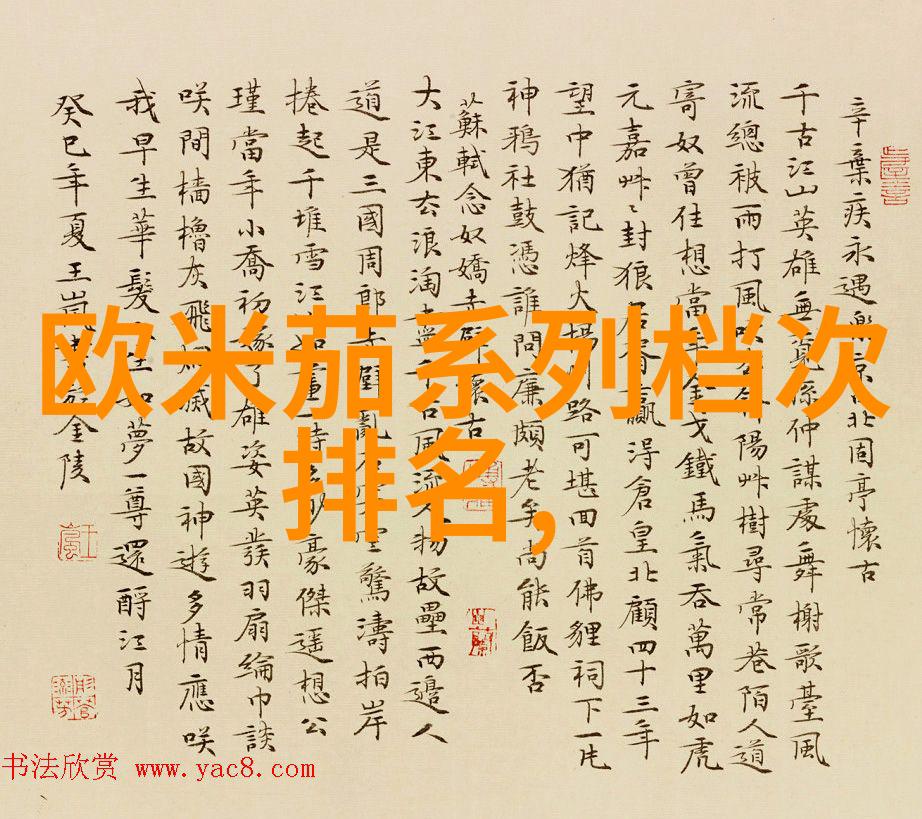 欧米茄系列档次
排名,
辛棄疾永遇樂京口北固亭懷古
千古江山英雄無覓孫仲謀處舞榭歌臺風
流總被雨打風吹去陽艸樹尋常巷陌人道
寄奴曾住想當年金戈鐵馬氣吞萬里如虎
元嘉艸〻封狼居胥贏得倉皇北顧四十三年
望中猶記烽火揚州路可堪回首佛貍祠下一片
神鴉社鼓憑誰問廉頗老矣尚能飯否
蘇軾念奴嬌赤壁懷古
大江東去浪淘盡千古風流人物故壘西邊人
道是三國周郎赤壁亂石空驚濤拍岸
捲起千堆雪江如畫一時多少豪傑遥想公
瑾當年小喬初嫁了雄姿英發羽扇綸巾談
咲間檣櫓灰飛烟滅故國神遊多情應咲
我早生華髮人生如夢一尊還酹江月
癸巳年夏王嵐書於金陵
书法欣赏 www.yac8.com